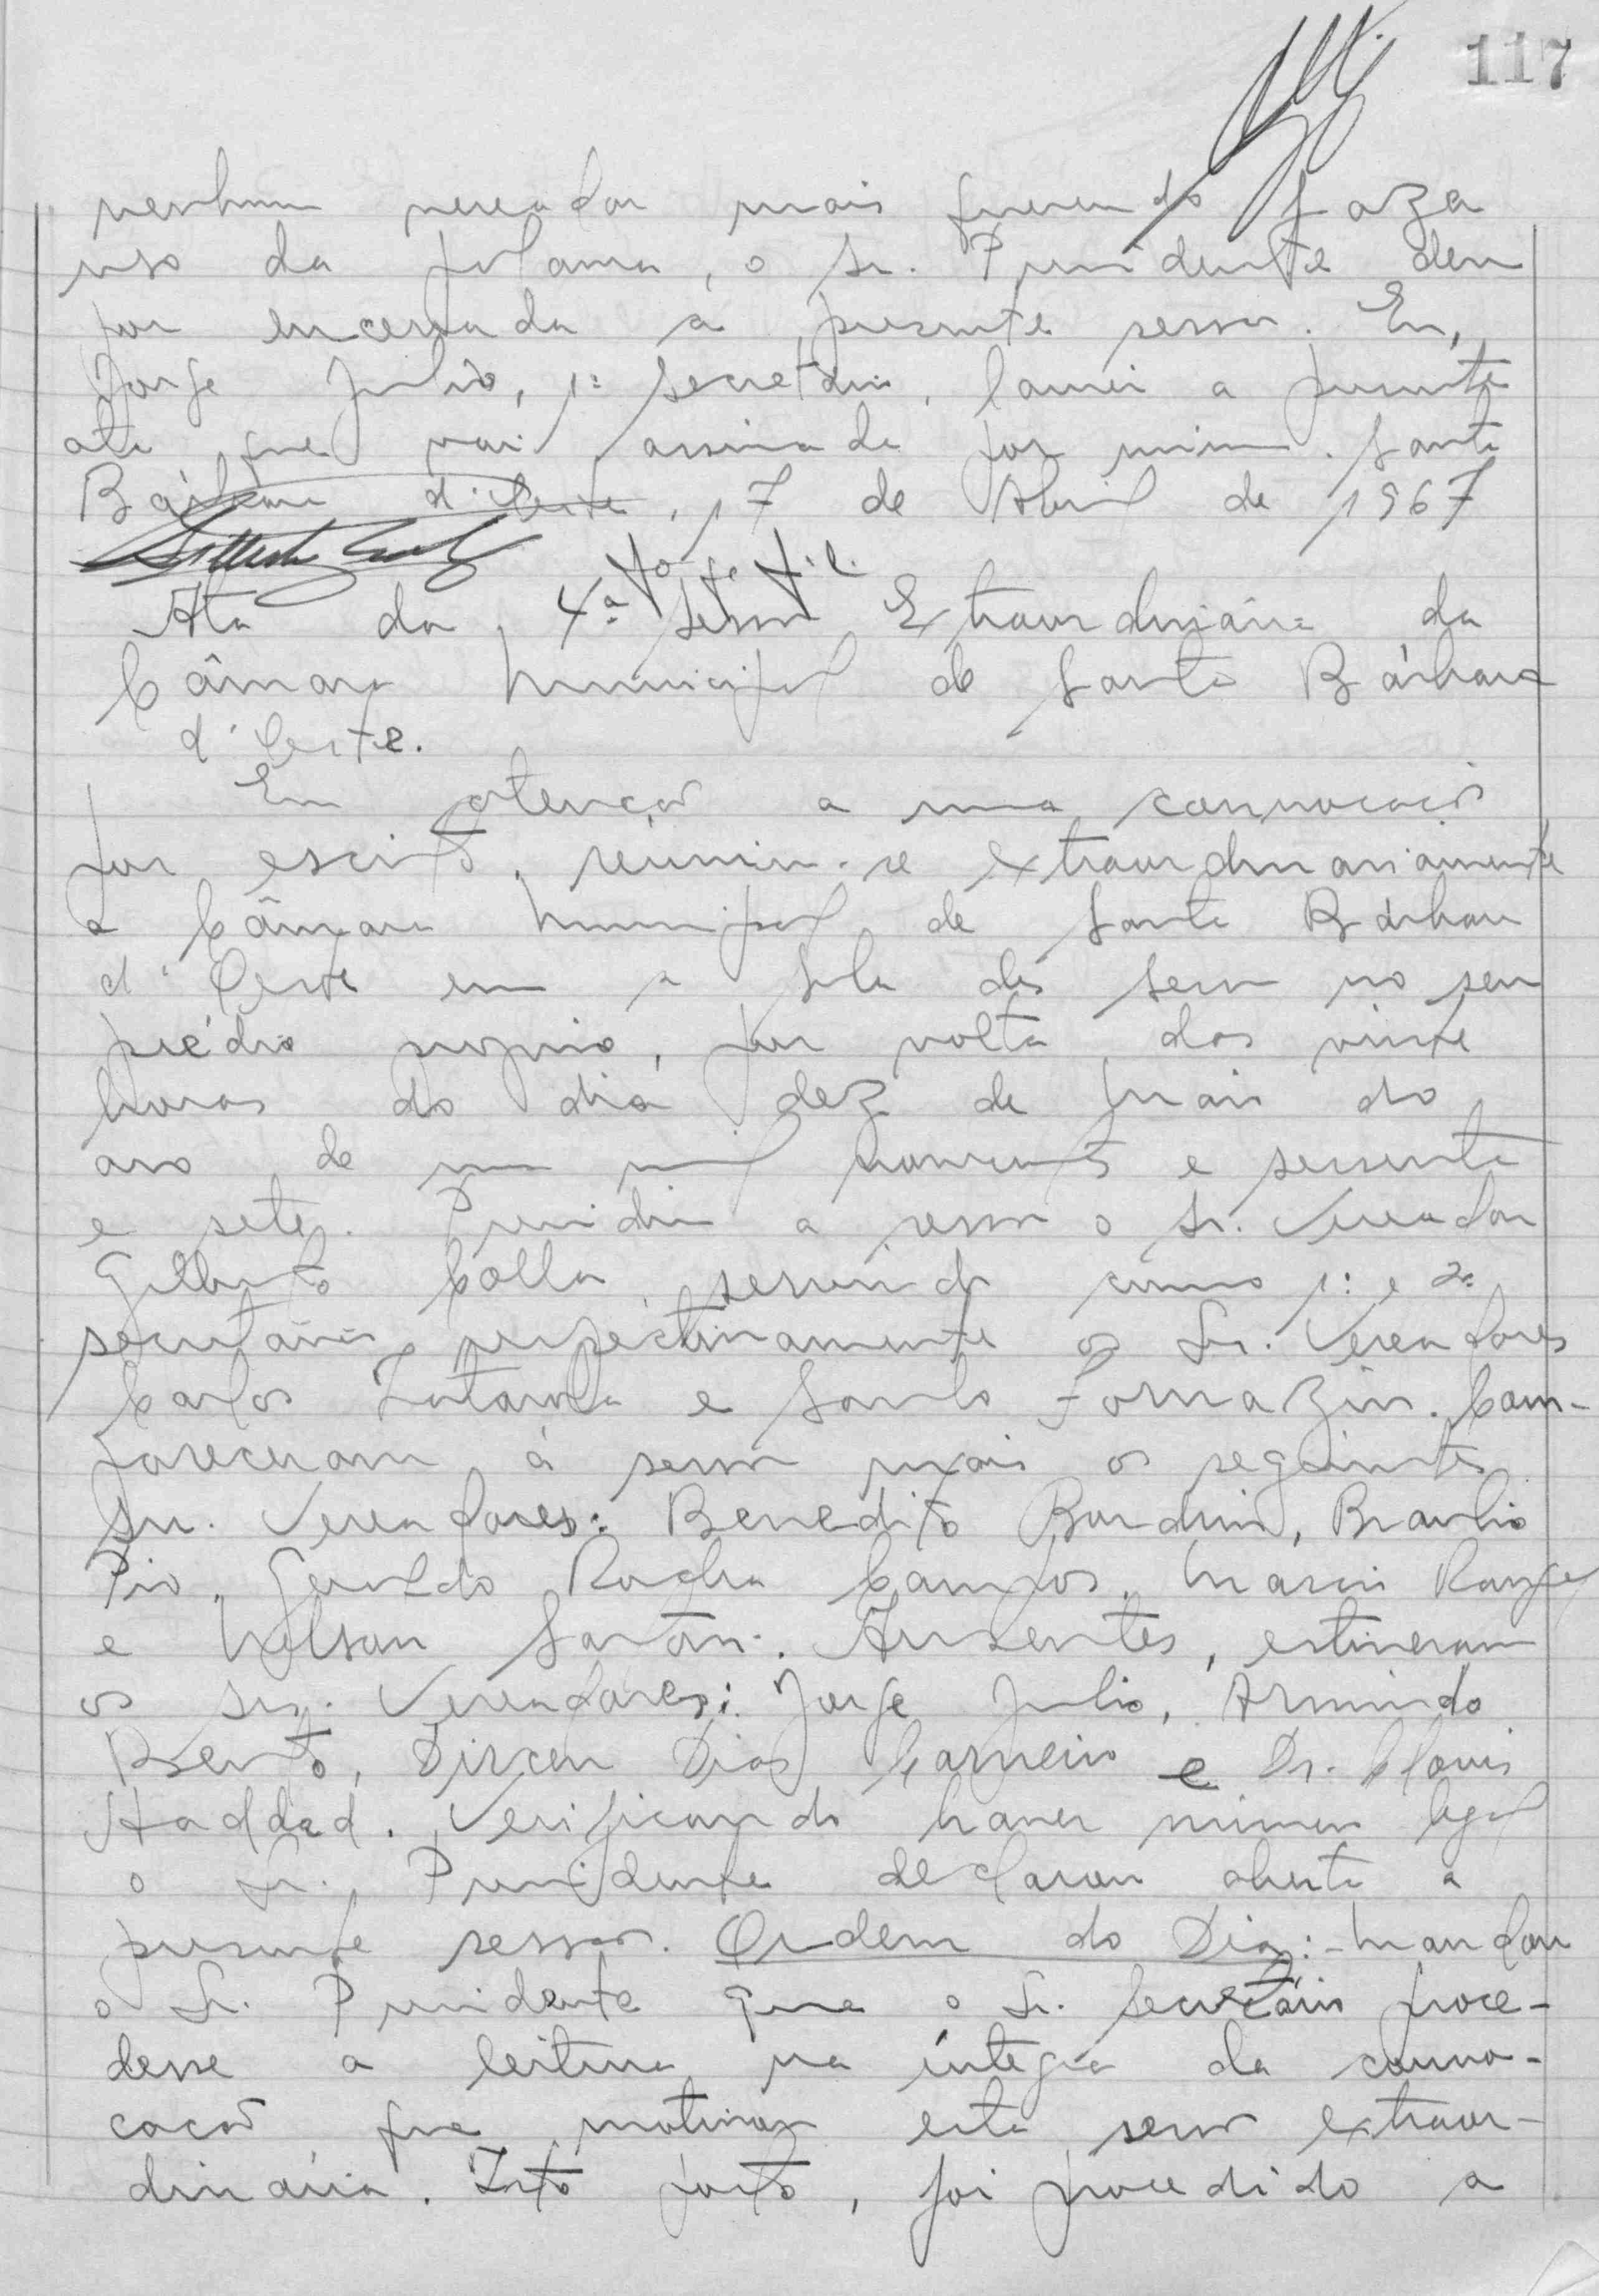 117
nenhum vereador mais querendo fazer
uso da palavra, o Sr. Presidente deu
por encerrada a presente sessão. Eu,
Jorge Julio, 1º secretário, lavrei a presente
ata que vai assinada por mim. Santa
Bárbara d'Oeste, 17 de Abril de 1967
Jorge Júlio
Ata da 4ª Sessão Extraordinária da
Câmara Municipal de Santa Bárbara
d'Oeste.
Em atenção a uma convocação
por escrito, reuniu-se extraordinariamente
a Câmara Municipal de Santa Bárbara
d'Oeste em a sala de sessão no seu
prédio próprio, por volta das vinte
horas do dia dez de Maio do
ano de um mil novecentos e sessenta
e sete. Presidiu a sessão o Sr. Vereador
Gilberto Colla, servindo como 1º e 2º
secretários respectivamente os Srs. Vereadores
Carlos e Santo Fornazin. Com-
pareceram à sessão mais os seguintes
Srs. Vereadores: Benedito Bordini, Braulio
Pio, Geraldo Rocha Campos, Mario
e Nelson. Ausentes, estiveram
os srs. Vereadores: Jorge Julio, Armindo
Bento, Dirceu Dias Carneiro e Dr. Clovis
Haddad. Verificando haver número legal
o Sr. Presidente declarou aberta a
presente sessão. Ordem do Dia:- Mandou
o Sr. Presidente que o Sr. Secretário proce-
desse a leitura na íntegra da convo-
cação que motivou esta sessão extraor-
dinária. Isto posto, foi procedido a